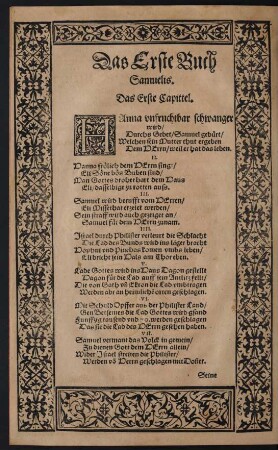 Das Erste Buch
Samuelis.
Das Erste Capittel.
HAnna vnfruchtbar schwanger
wird/
Durchs Gebet/ Samuel gebürt/
Welchen sein Mutter thut ergeben
Dem HErrn/ weil er hat das leben.
II.
Hanna frölich dem HErrn sing/
Eli Söne bös Buben sind/
Man Gottes drohet hart dem Haus
Eli/ dasselbige zu rotten auß.
III.
Samuel wird berufft vom HErren/
Eli Missethat erzelt werden/
Sein straff wird auch gezeiget an/
Samuel für dem HErrn zunam.
IIII.
Israel durch Philister verleurt die Schlacht
Die Lad des Bunds wird ins läger bracht
Hophni vnd Pinehas komen vmbs leben/
Eli bricht sein Hals am Thor eben.
V.
Lade Gottes wird ins Haus Dagon gestellt
Dagon für die Lad auff sein Antlitz felt/
Die von Gath vñ Ekron die Lad
Werden abr an heimlichē orten geschlagen.
VI.
Mit Schuld Opffer aus der Philister Land/
Gen Bersemes die Lad Gottes wird gsand
Funffzig tausend vnd 70. werden geschlagen
Das sie die Lad des HErrn gesehen haben.
VII.
Samuel vermant das Volck in gemein/
Zu dienen Gott dem HErrn allein/
Wider Israel streiten die Philister/
Werden vō Herrn geschlagen mit Donner.
Seine